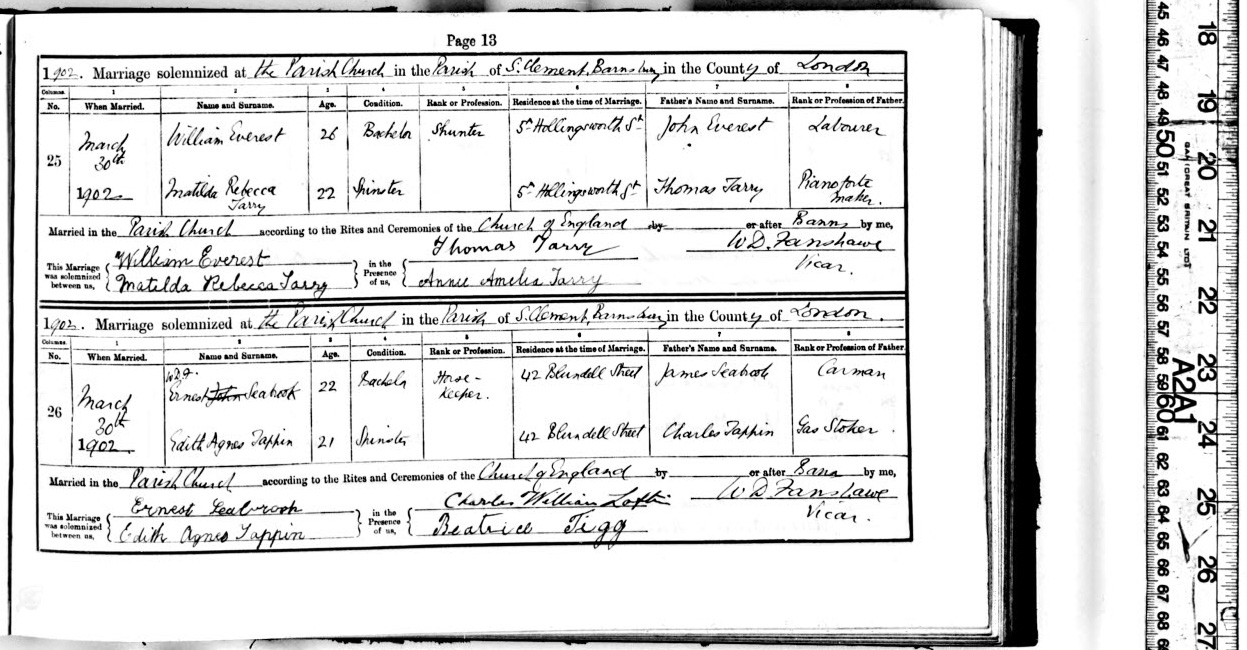 Page 13
1902. Marriage solemnized at the Parish Church in the Parish of S. Clement, Barnsbury in the County of London
Columns. 1 2 3 4 5 6 7 8
No. When Married. Name and Surname. Age. Condition. Rank or Profession. Residence at the time of Marriage. Father's Name and Surname. Rank or Profession of Father.
25 March 30th 1902 William Everest 26 Bachelor Shunter 5A Hollingsworth St John Everest Labourer
Matilda Rebecca Tarry 22 Spinster 5A Hollingsworth St Thomas Tarry Pianoforte maker.
Married in the Parish Church according to the Rites and Ceremonies of the Church of England by or after Banns by me,
This Marriage was solemnized between us, William Everest in the Presence of us, Thomas Tarry W D. Fanshawe
Matilda Rebecca Tarry Annie Amelia Tarry Vicar.
1902. Marriage solemnized at the Parish Church in the Parish of S. Clement, Barnsbury in the County of London.
Columns. 1 2 3 4 5 6 7 8
No. When Married. Name and Surname. Age. Condition. Rank or Profession. Residence at the time of Marriage. Father's Name and Surname. Rank or Profession of Father.
W.D.F.
26 March 30th 1902 Ernest John Seabrook 22 Bachelor Horse-keeper. 42 Blundell Street James Seabrook Carman
Edith Agnes Tappin 21 Spinster 42 Blundell Street Charles Tappin Gas Stoker.
Married in the Parish Church according to the Rites and Ceremonies of the Church of England by or after Banns by me,
This Marriage was solemnized between us, Ernest Seabrook in the Presence of us, Charles William W D Fanshawe
Edith Agnes Tappin Beatrice Tigg Vicar.
45 46 47 48 49 50 51 52 53 54 55 56 57 58 59 60 61 62 63 64 65 66 67 68
A2A1
18 19 20 21 22 23 24 25 26 27